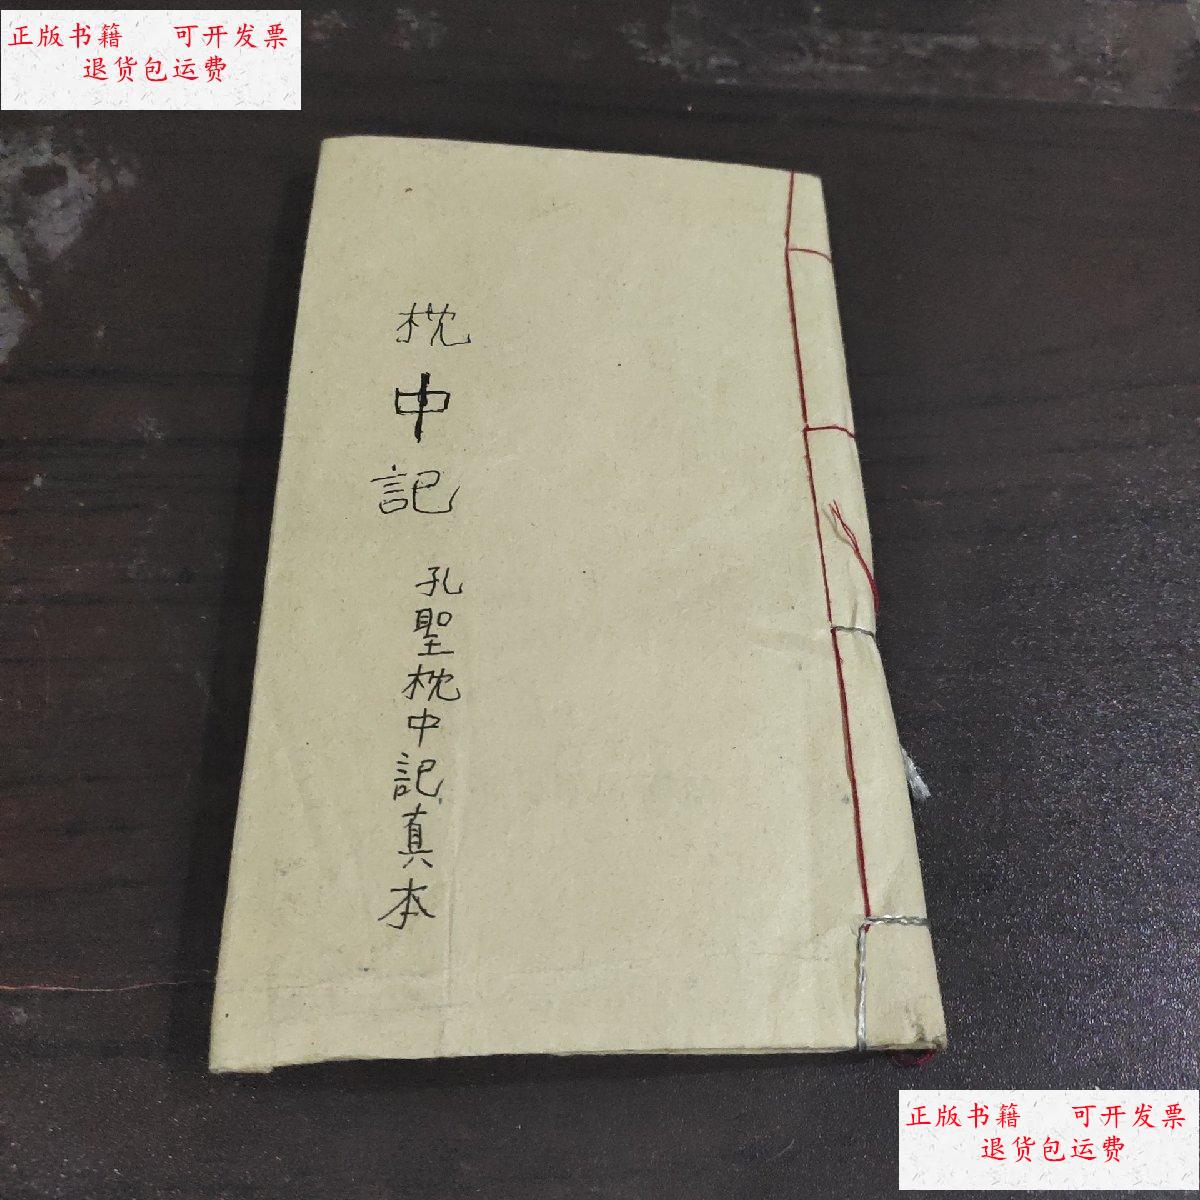 正版书籍 可开发票
退货包运费
枕中記
孔聖枕中記真本
正版书籍 可开发票
退货包运费